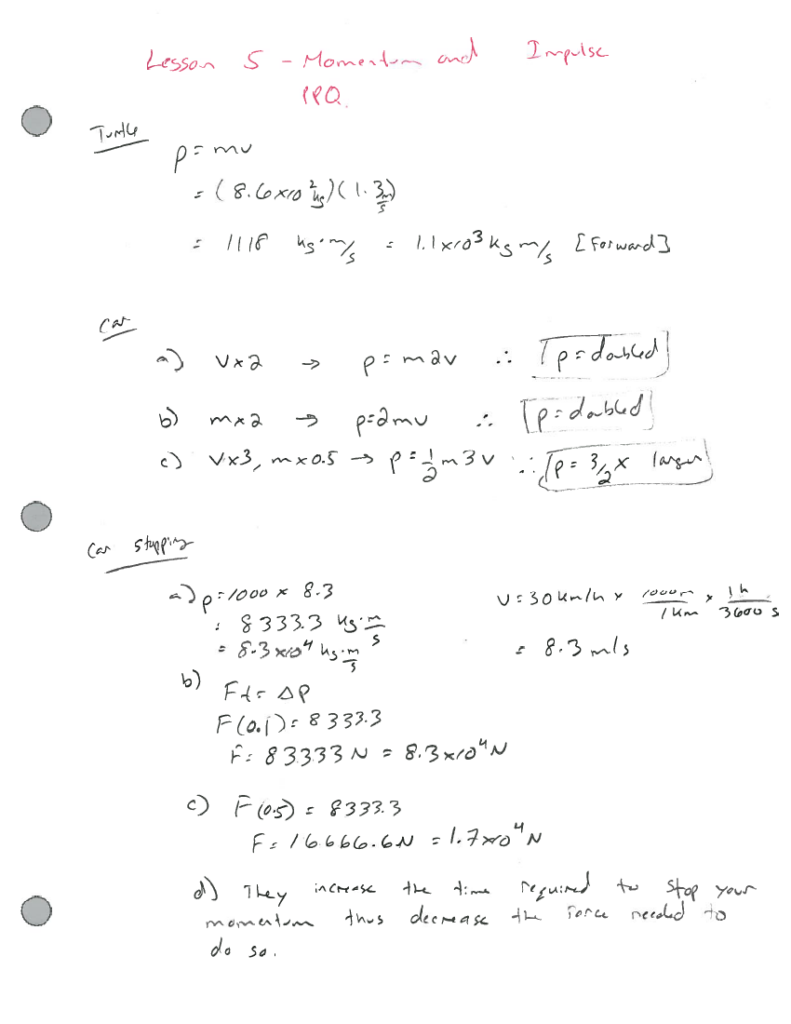 Lesson 5 - Momentum and Impulse
PPQ.
Turtle
p = mv
= (8.6x10² kg)(1.3 m/s)
= 1118 kg·m/s = 1.1x10³ kg m/s [Forward]
Car
a) v x 2 → p = m2v ∴ p = doubled
b) m x 2 → p=2mv ∴ p = doubled
c) v x 3, m x 0.5 → p = 1/2 m 3 v ∴ p = 3/2 x larger
Car stopping
a) p = 1000 x 8.3
= 8333.3 kg·m/s
= 8.3 x10⁴ kg·m/s
v = 30 km/h x 1000m/1km x 1h/3600 s
= 8.3 m/s
b) Ft = ΔP
F(0.1) = 8333.3
F = 83333 N = 8.3x10⁴ N
c) F(0.5) = 8333.3
F = 16666.6N = 1.7x10⁴ N
d) They increase the time required to stop your
momentum thus decrease the force needed to
do so.